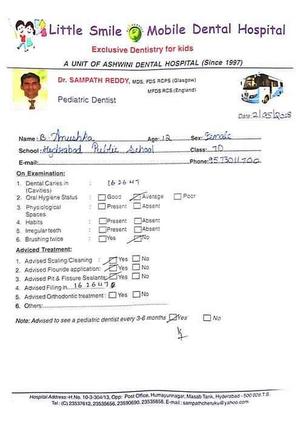 Little Smile Mobile Dental Hospital
Exclusive Dentistry for kids
A UNIT OF ASHWINI DENTAL HOSPITAL (Since 1997)
Dr. SAMPATH REDDY, MDS, FDS RCPS (Glasgow)
MFDS RCS (England)
Pediatric Dentist
Date: 21/05/2018
Name: B. Anushka Age: 12 Sex: Female
School: Hyderabad Public School Class: 7D
E-mail: Phone:
On Examination:
1. Dental Caries in 16 26 47
(Cavities)
2. Oral Hygiene Status : Good Average Poor
3. Physiological : Present Absent
Spaces
4. Habits : Present Absent
5. Irregular teeth : Present Absent
6. Brushing twice : Yes No
Adviced Treatment:
1. Advised Scaling Cleaning : Yes No
2. Advised Flouride application: Yes No
3. Advised Pit & Fissure Sealants: Yes No
4. Advised Filing in
5. Advised Orthodontic treatment : Yes No
6. Others:
Note: Advised to see a pediatric dentist every 3-6 months Yes No
Hospital Address: H.No. 10-3-304/13, Opp: Post Office, Humayunnagar, Masab Tank, Hyderabad - 500 028 T.S.
Tel: (C) 23537612, 23535656, 23590690, 23535858, E-mail: sampathcheruku@yahoo.com